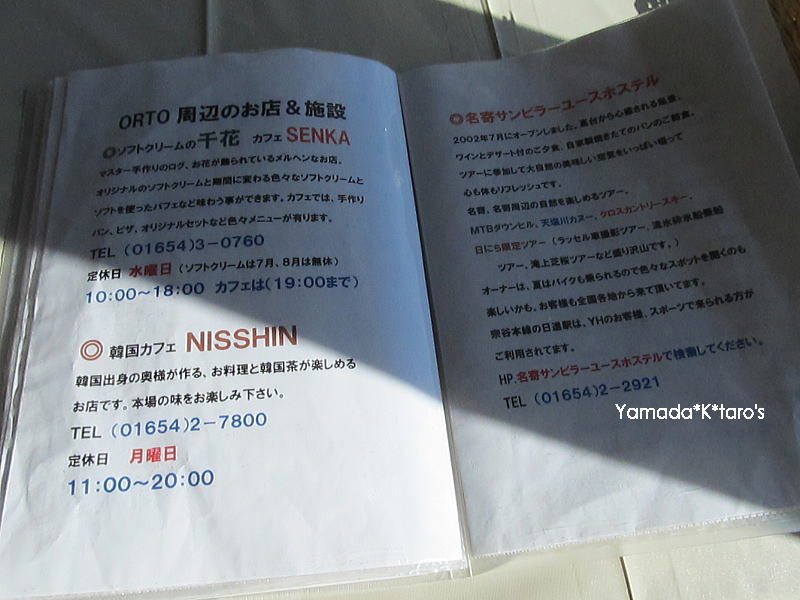 ORTO 周辺のお店＆施設
◎ソフトクリームの千花 カフェ SENKA
マスター手作りのログ、お花が飾られているメルヘンなお店。
オリジナルのソフトクリームと期間に変わる色々なソフトクリームと
ソフトを使ったパフェなど味わう事ができます。カフェでは、手作り
パン、ピザ、オリジナルセットなど色々メニューが有ります。
TEL （01654）3－0760
定休日 水曜日（ソフトクリームは7月、8月は無休）
10:00～18:00 カフェは（19:00まで）
◎ 韓国カフェ NISSHIN
韓国出身の奥様が作る、お料理と韓国茶が楽しめる
お店です。本場の味をお楽しみ下さい。
TEL （01654）2－7800
定休日 月曜日
11:00～20:00
◎名寄サンピラーユースホステル
2002年7月にオープンしました。高台から心癒される風景。
ワインとデザート付のご夕食、自家製焼きたてのパンのご朝食。
ツアーに参加して大自然の美味しい空気をいっぱい吸って
心も体もリフレッシュです。
名寄、名寄周辺の自然を楽しめるツアー。
MTBダウンヒル、天塩川カヌー、クロスカントリースキー、
日にち限定ツアー（ラッセル車撮影ツアー、流氷砕氷船乗船
ツアー、滝上芝桜ツアーなど盛り沢山です。）
オーナーは、夏はバイクも乗られるので色々なスポットを聞くのも
楽しいかも。お客様も全国各地から来て頂いてます。
宗谷本線の日進駅は、YHのお客様、スポーツで来られる方が
ご利用されてます。
HP.名寄サンピラーユースホステルで検索してください。
TEL （01654）2－2921
Yamada*K*taro's